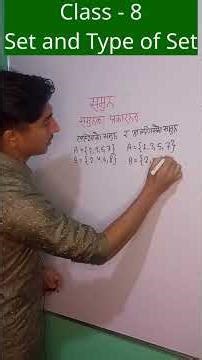 Class - 8
Set and Type of Set
समूह
समूहका प्रकारहरू
A = {2, 3, 5, 7} A = {2, 3, 5, 7}
B = {2, 4, 6, 8} B = {2,